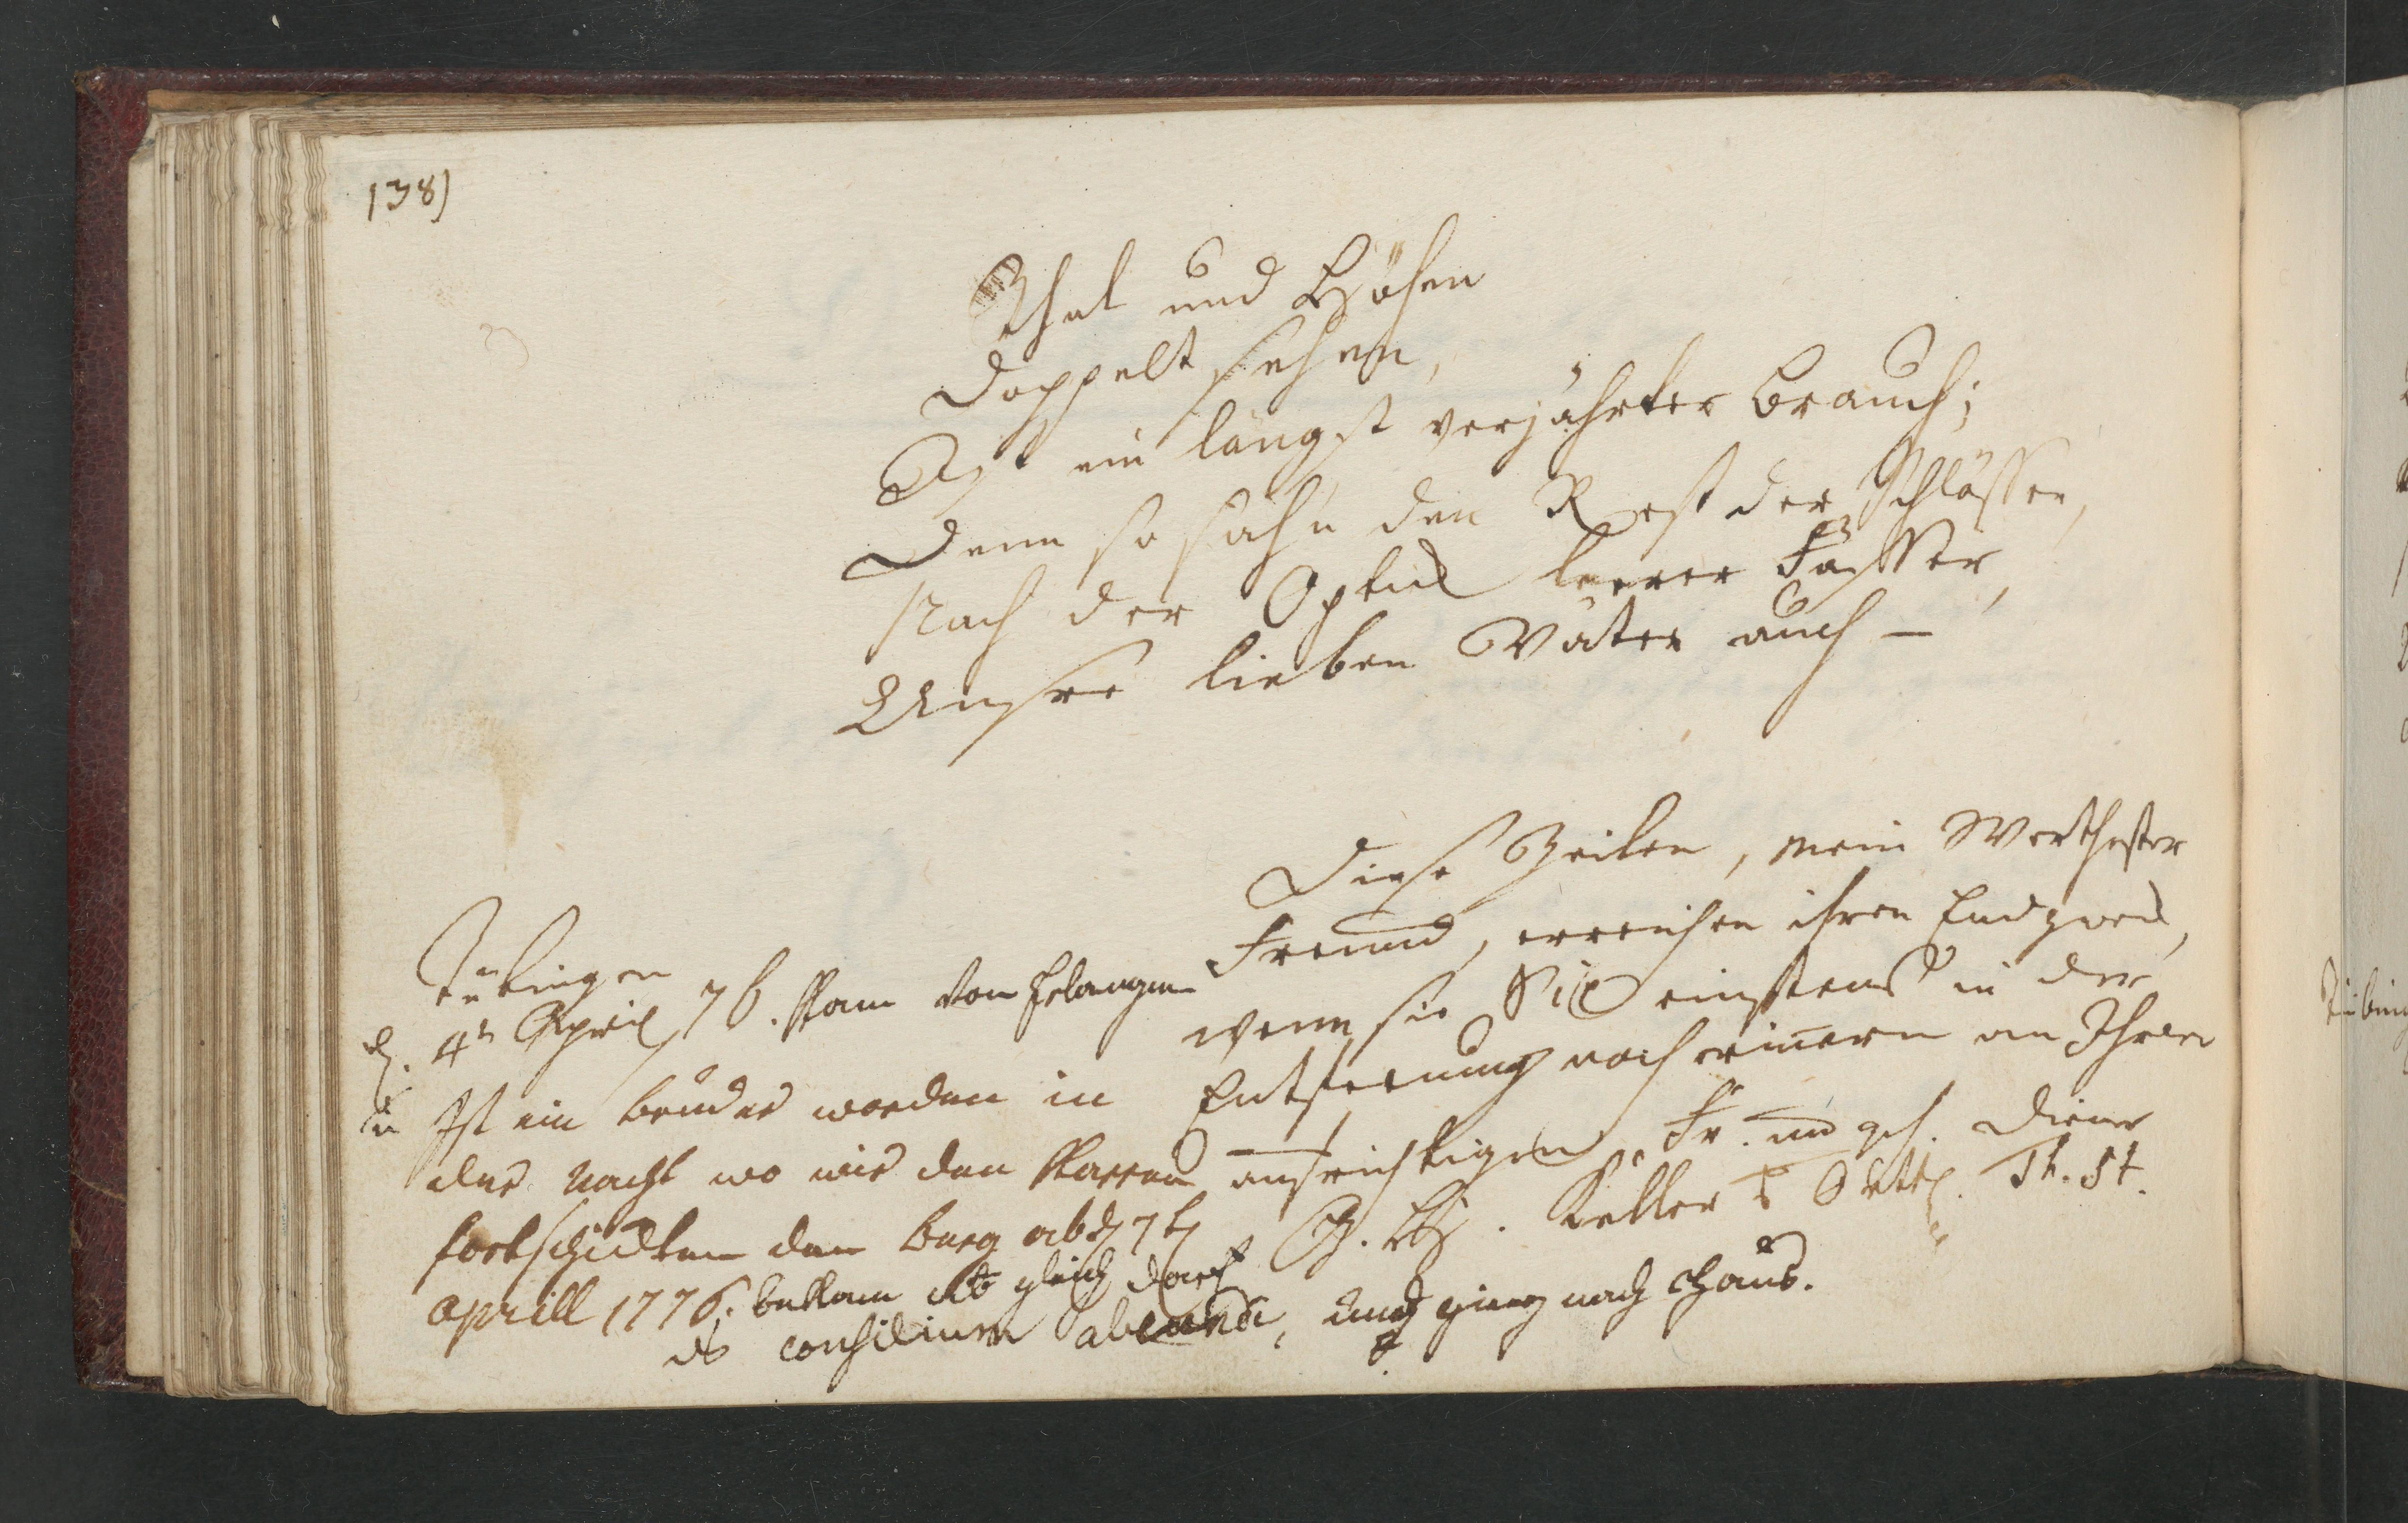 138)
Thal und Höhen
Doppelt sehen,
Ist ein längst verjährter Brauch;
Denn so sah'n den Rest der Schlösser,
Nach der Optick leerer Fässer,
Unsre lieben Väter auch –
Diese Zeilen, mein Werthester
Freund, erreichen ihren Endzweck,
wenn sie Sie einstens in der
Entfernung noch erinnern an Ihren
aufrichtigen Fr. und geh. Diener
Keller Th. St.
Tübingen
d. 4n April 76. kam von Erlangen
Ist ein bruder worden in
der Nacht wo wir den Karren
fortschickten den berg ab d 7t
aprill 1776. bekam gleich drauf
ds consilium abeundi, und gieng nach Haus.
Tübing